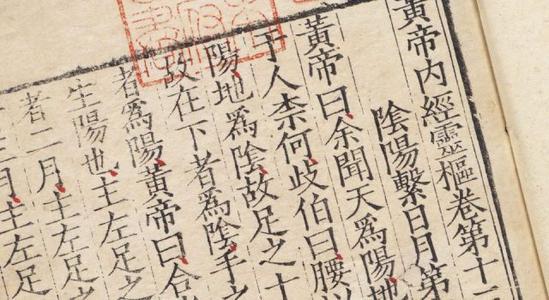 黃帝內經靈樞卷第十
陰陽繫日月第
黃帝曰余聞天爲陽地
于人柰何歧伯曰腰以
陽地爲陰故足之十
故在下者爲陰手之
者爲陽黃帝曰合
生陽也主左足
者二月主左足
月主左足